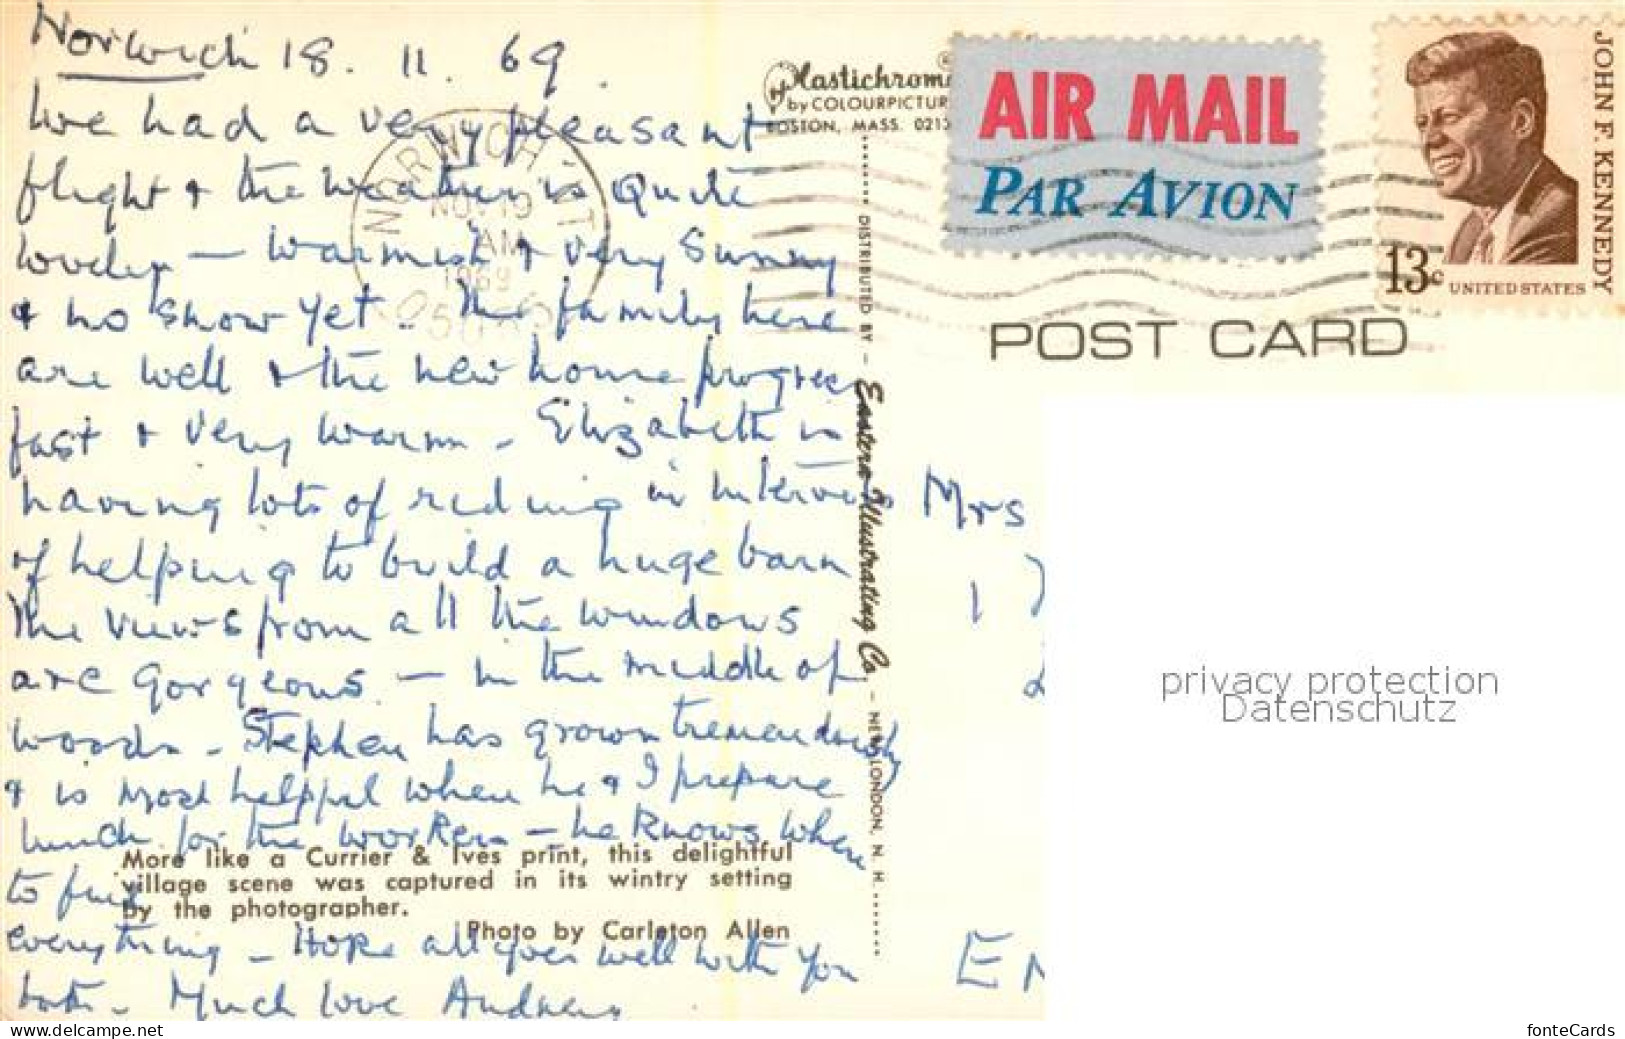 Norwich 18. 11. 69.
We had a very pleasant
flight & the weather is quite
lovely — warmish & very sunny
& no snow yet. The family here
are well & the new home progress
fast & very warm - Elizabeth is
having lots of riding in intervals
of helping to build a huge barn
The views from all the windows
are gorgeous — in the middle of
woods - Stephen has grown tremendously
& is most helpful when he & I prepare
lunch for the workers — he knows where
to find
everything - Hope all goes well with you
both - Much love
More like a Currier & Ives print, this delightful
village scene was captured in its wintry setting
by the photographer.
Photo by Carleton Allen
Plastichrome ®
by COLOURPICTUR
BOSTON, MASS. 0213
DISTRIBUTED BY — Eastern Illustrating Co. — NEW LONDON, N. H.
NORWICH VT
NOV 19
AM
1969
AIR MAIL
PAR AVION
JOHN F. KENNEDY
13c UNITED STATES
POST CARD
Mrs
1
EN
privacy protection
Datenschutz
www.delcampe.net
fonteCards